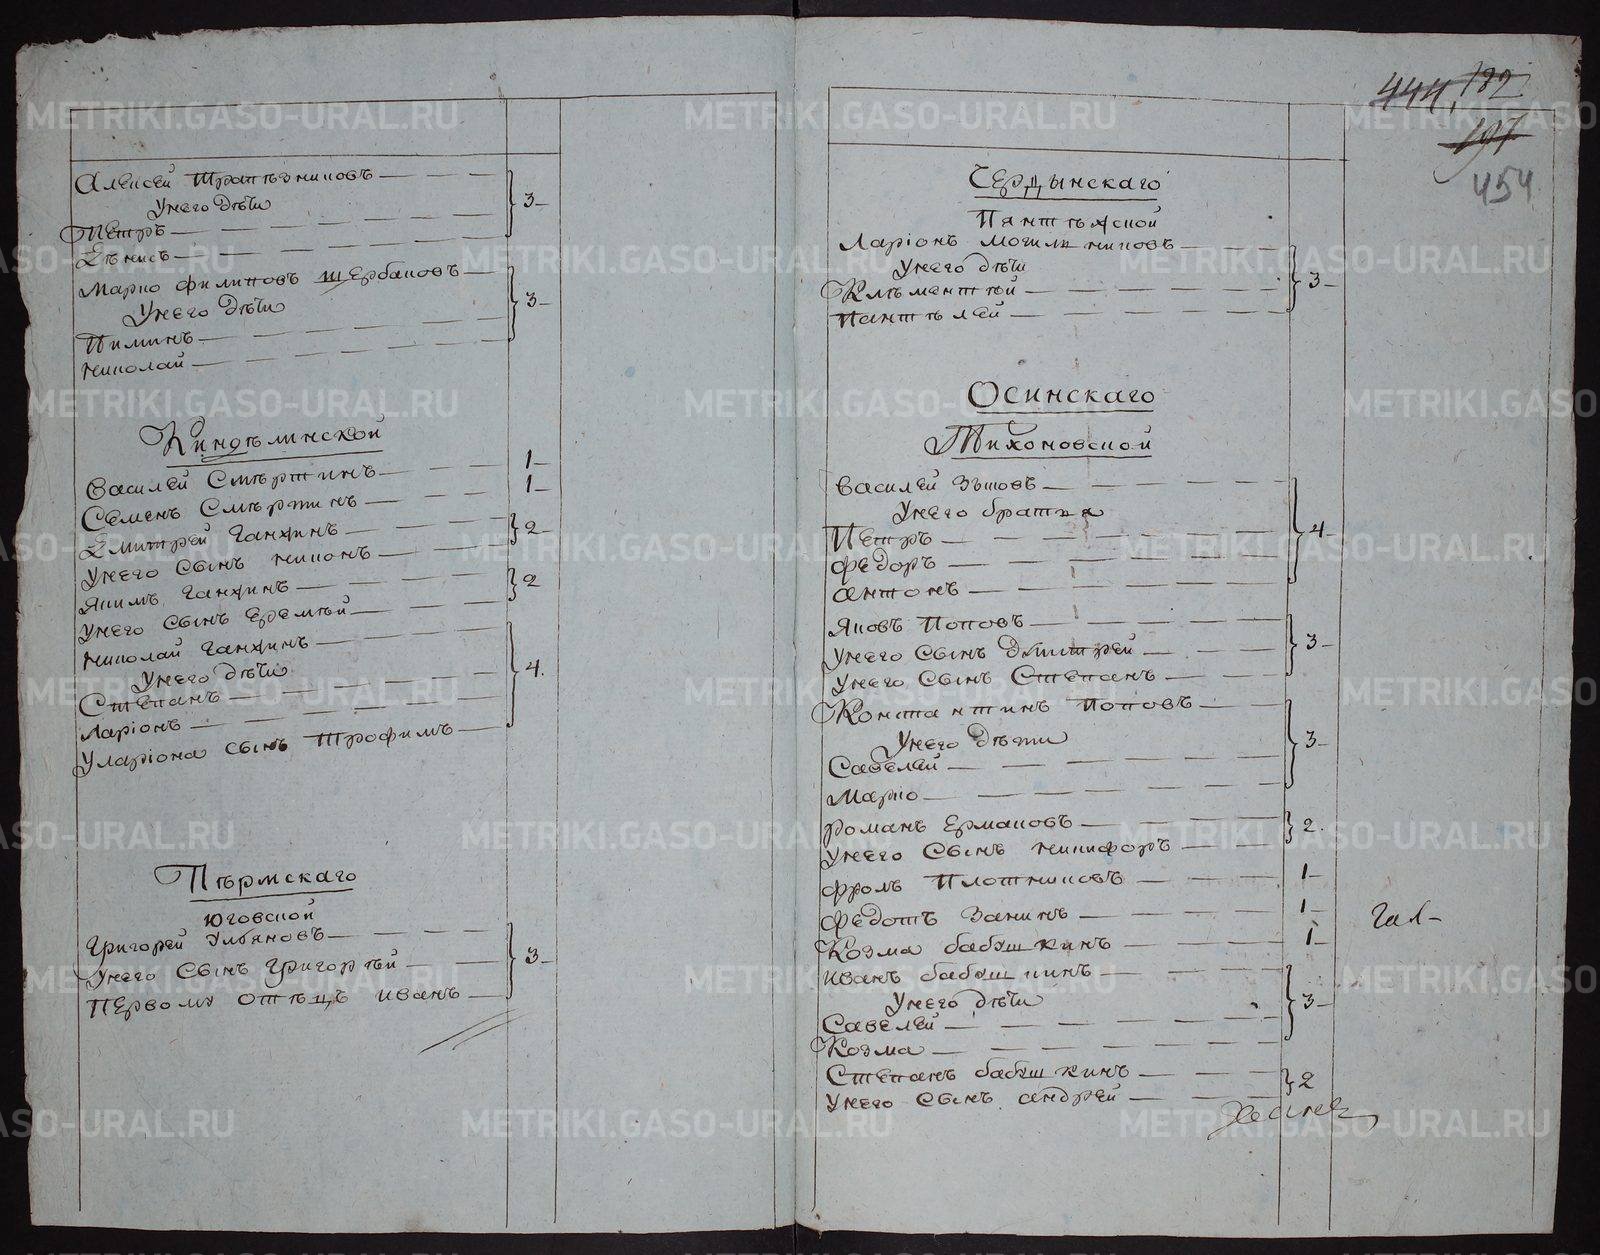 Алексей Трапѣзниковъ — 3 —
У него дѣти
Петръ
Дѣнисъ
Марко Филиповъ Щербаковъ — 3 —
У него дѣти
Пиминъ
Николай
Киндѣлинской
Василей Смѣртинъ — 1 —
Семенъ Смѣртинъ — 1 —
Дмитрей Ганжинъ — 2 —
У него сынъ Никонъ
Якимъ Ганжинъ — 2
У него сынъ Еремѣй
Николай Ганжинъ — 4.
У него дѣти
Степанъ
Ларіонъ
У Ларіона сынъ Трофимъ
Пѣрмскаго
Юговской
Григорей Ульяновъ — 3 —
У него сынъ Григорѣй
Первому отѣцъ Иванъ
444. 182
197
454
Чердынскаго
Пянтѣжской
Ларіонъ Могильниковъ — 3 —
У него дѣти
Клѣментѣй
Пантѣлей
Осинскаго
Тихоновской
Василей Зыковъ — 4 —
У него братья
Петръ
Федоръ
Антонъ
Яковъ Поповъ — 3 —
У него сынъ Дмитрей
У него сынъ Степанъ
Контантинъ Поповъ — 3 —
У него дѣти
Савелей
Марко
Романъ Ермаковъ — 2.
У него сынъ Никифоръ
Фролъ Плотниковъ — 1 —
Федотъ Занинъ — 1 —
Козма Бабушкинъ — 1 —
Иванъ Бабушкинъ — 3 —
У него дѣти
Савелей
Козма
Степанъ Бабушкинъ — 2
У него сынъ Андрей
METRIKI.GASO-URAL.RU